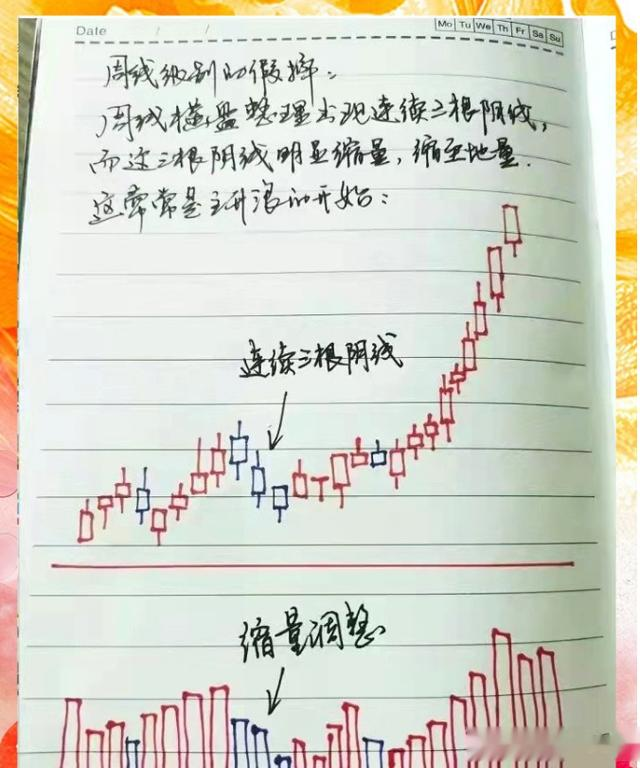 Date / /
Mo Tu We Th Fr Sa Su
周线级别的假摔:
周线横盘整理出现连续三根阴线,
而这三根阴线明显缩量,缩至地量.
这常常是主升浪的开始:
连续三根阴线
缩量调整